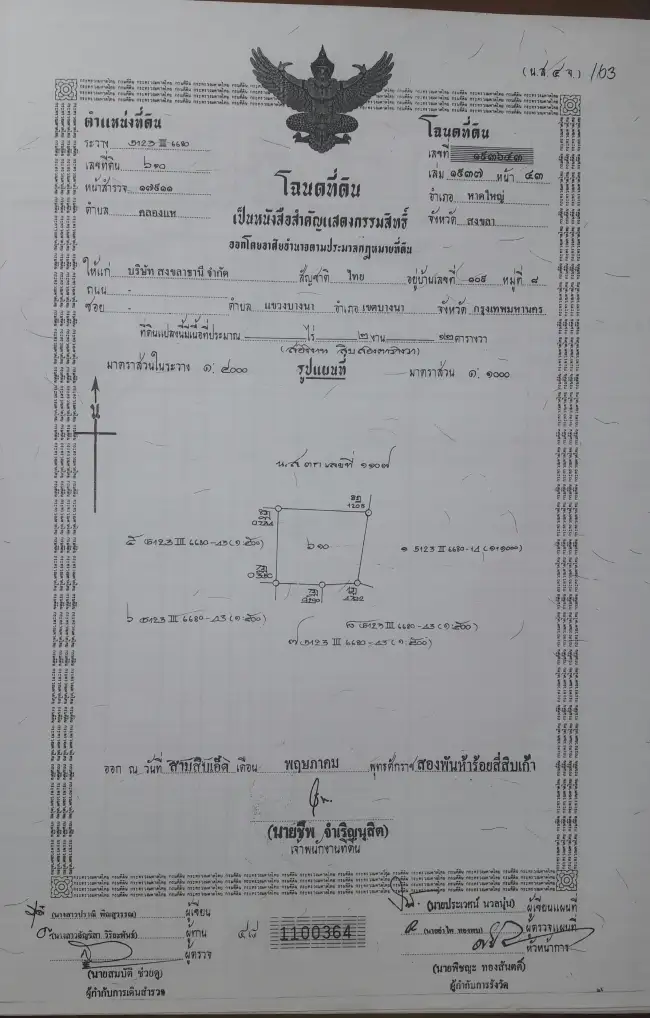 (น.ส.๔ จ.) 163
ตำแหน่งที่ดิน
ระวาง 5123 III 6680
เลขที่ดิน ๖๑๐
หน้าสำรวจ ๑๗๙๑๑
ตำบล คลองแห
โฉนดที่ดิน
เลขที่ ๑๙๓๖๔๓
เล่ม ๑๙๓๗ หน้า ๔๓
อำเภอ หาดใหญ่
จังหวัด สงขลา
โฉนดที่ดิน
เป็นหนังสือสำคัญแสดงกรรมสิทธิ์
ออกโดยอาศัยอำนาจตามประมวลกฎหมายที่ดิน
ให้แก่ บริษัท สงขลาธานี จำกัด สัญชาติ ไทย อยู่บ้านเลขที่ ๑๐๙ หมู่ที่ ๘
ถนน -
ซอย - ตำบล แขวงบางนา อำเภอ เขตบางนา จังหวัด กรุงเทพมหานคร
ที่ดินแปลงนี้มีเนื้อที่ประมาณ - ไร่ ๒ งาน ๑๒ ตารางวา
(สองงาน สิบสองตารางวา)
มาตราส่วนในระวาง ๑: ๔๐๐๐ รูปแผนที่ มาตราส่วน ๑: ๑๐๐๐
น
น.ส.๓ก เลขที่ ๑๑๐๗
๖๑๐
๕ 5123 III 6680-43 (๑:๕๐๐)
๑ 5123 III 6680-14 (๑:๑๐๐๐)
๖ 5123 III 6680-43 (๑:๕๐๐)
๘ 5123 III 6680-43 (๑:๕๐๐)
๗ 5123 III 6680-43 (๑:๕๐๐)
ออก ณ วันที่ สามสิบเอ็ด เดือน พฤษภาคม พุทธศักราช สองพันห้าร้อยสี่สิบเก้า
(นายชีพ จำเริญนุสิต)
เจ้าพนักงานที่ดิน
ผู้เขียน
ผู้ทาน
ผู้ตรวจ
(นายสมบัติ ช่วยดู)
ผู้กำกับการเดินสำรวจ
๔๘
1100364
(นายประเวศน์ นวลนุ่น) ผู้เขียนแผนที่
ผู้ตรวจแผนที่
หัวหน้ากาง
(นายพิชญะ ทองสันตติ์)
ผู้กำกับการรังวัด